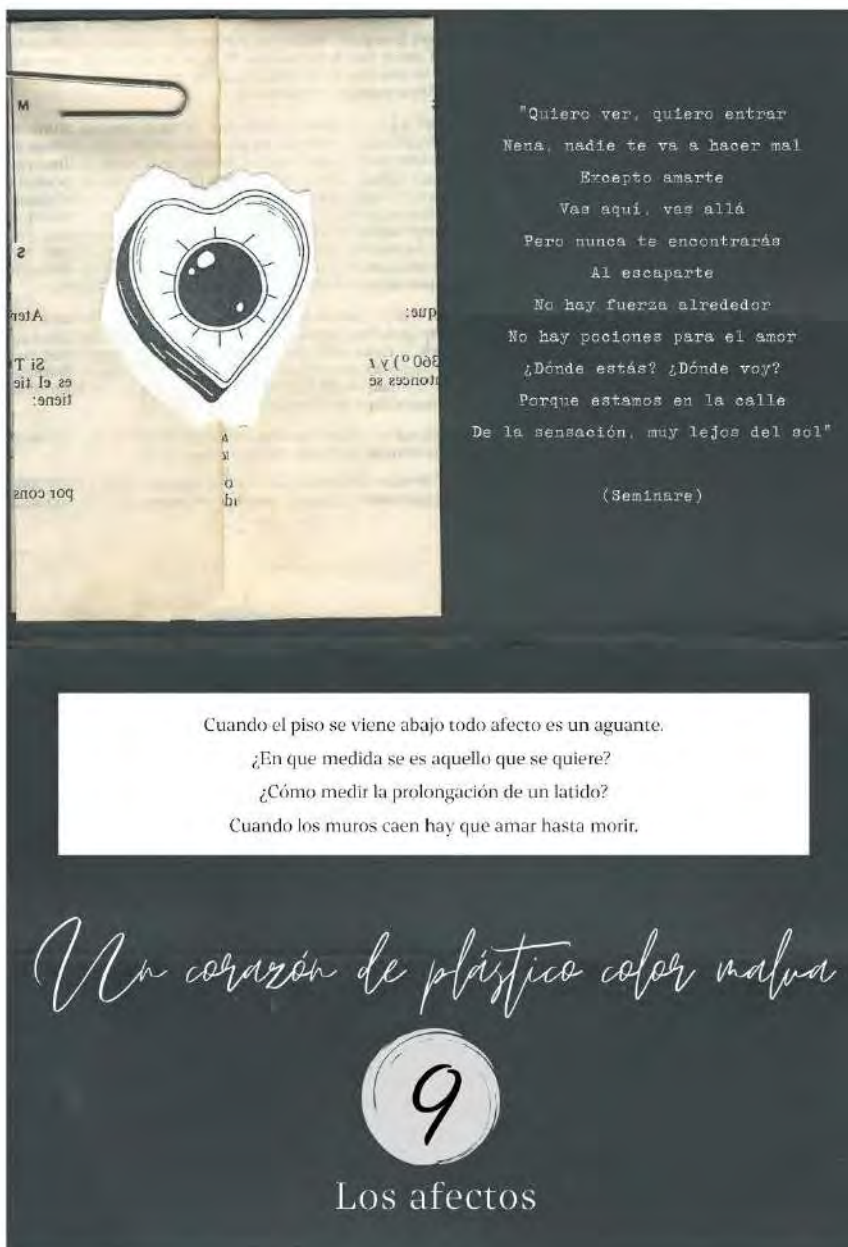 M
S
Aten
Si T
es el tie
tiene:
por cons
que:
360 º) y t
tonces se
"Quiero ver, quiero entrar
Nena, nadie te va a hacer mal
Excepto amarte
Vas aquí, vas allá
Pero nunca te encontrarás
Al escaparte
No hay fuerza alrededor
No hay pociones para el amor
¿Dónde estás? ¿Dónde voy?
Porque estamos en la calle
De la sensación, muy lejos del sol"
(Seminare)
Cuando el piso se viene abajo todo afecto es un aguante.
¿En que medida se es aquello que se quiere?
¿Cómo medir la prolongación de un latido?
Cuando los muros caen hay que amar hasta morir.
Un corazón de plástico color malva
9
Los afectos